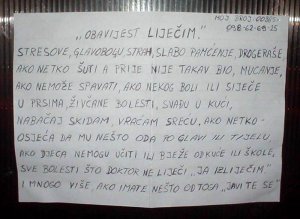 MOJ BROJ - ODGISI
098-62-69-15
„OBAVIJEST LIJEČIM."
STRESOVE, GLAVOBOLJU STRAH, SLABO PAMČENJE, DROGERAŠE,
AKO NETKO ŠUTI A PRIJE NIJE TAKAV BIO, MUCANJE,
AKO NEMOŽE SPAVATI, AKO NEKOG BOLI ILI SIJEČE
U PRSIMA, ŽIVČANE BOLESTI, SVAĐU U KUĆI,
NABAČAJ SKIDAM, VRAĆAM SREĆU, AKO NETKO-
OSJEĆA DA MU NEŠTO ODA PO GLAVI ILI TIJELU,
AKO DJECA NEMOGU UČITI ILI BJEŽE ODKUĆE ILI ŠKOLE,
SVE BOLESTI ŠTO DOKTOR NE LIJEČI „JA IZLIJEČIM"
I MNOGO VIŠE, AKO IMATE NEŠTO OD TOGA „JAVITE SE"